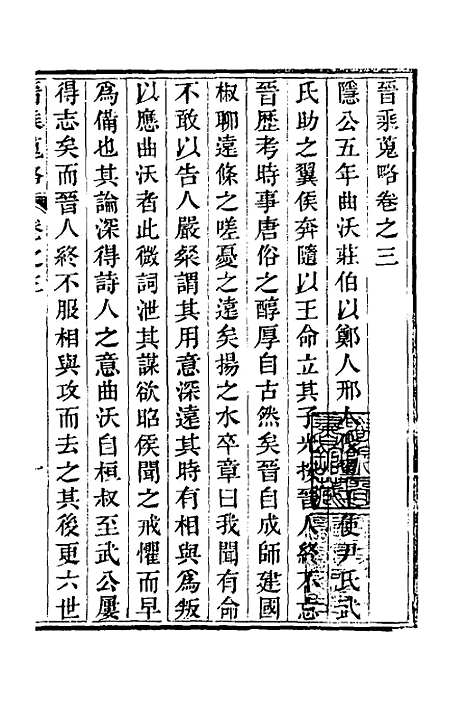 晉乘蒐略卷之三
隱公五年曲沃莊伯以鄭人邢人伐翼王使尹氏武
氏助之翼侯奔隨以王命立其子光按晉人終不忘
晉歷考時事唐俗之醇厚自古然矣晉自成師建國
椒聊遠條之嗟憂之遠矣揚之水卒章曰我聞有命
不敢以告人嚴粲謂其用意深遠其時有相與爲叛
以應曲沃者此微詞泄其謀欲昭侯聞之戒懼而早
爲備也其論深得詩人之意曲沃自桓叔至武公屢
得志矣而晉人終不服相與攻而去之其後更六世
晉乘蒐略 卷之三 一